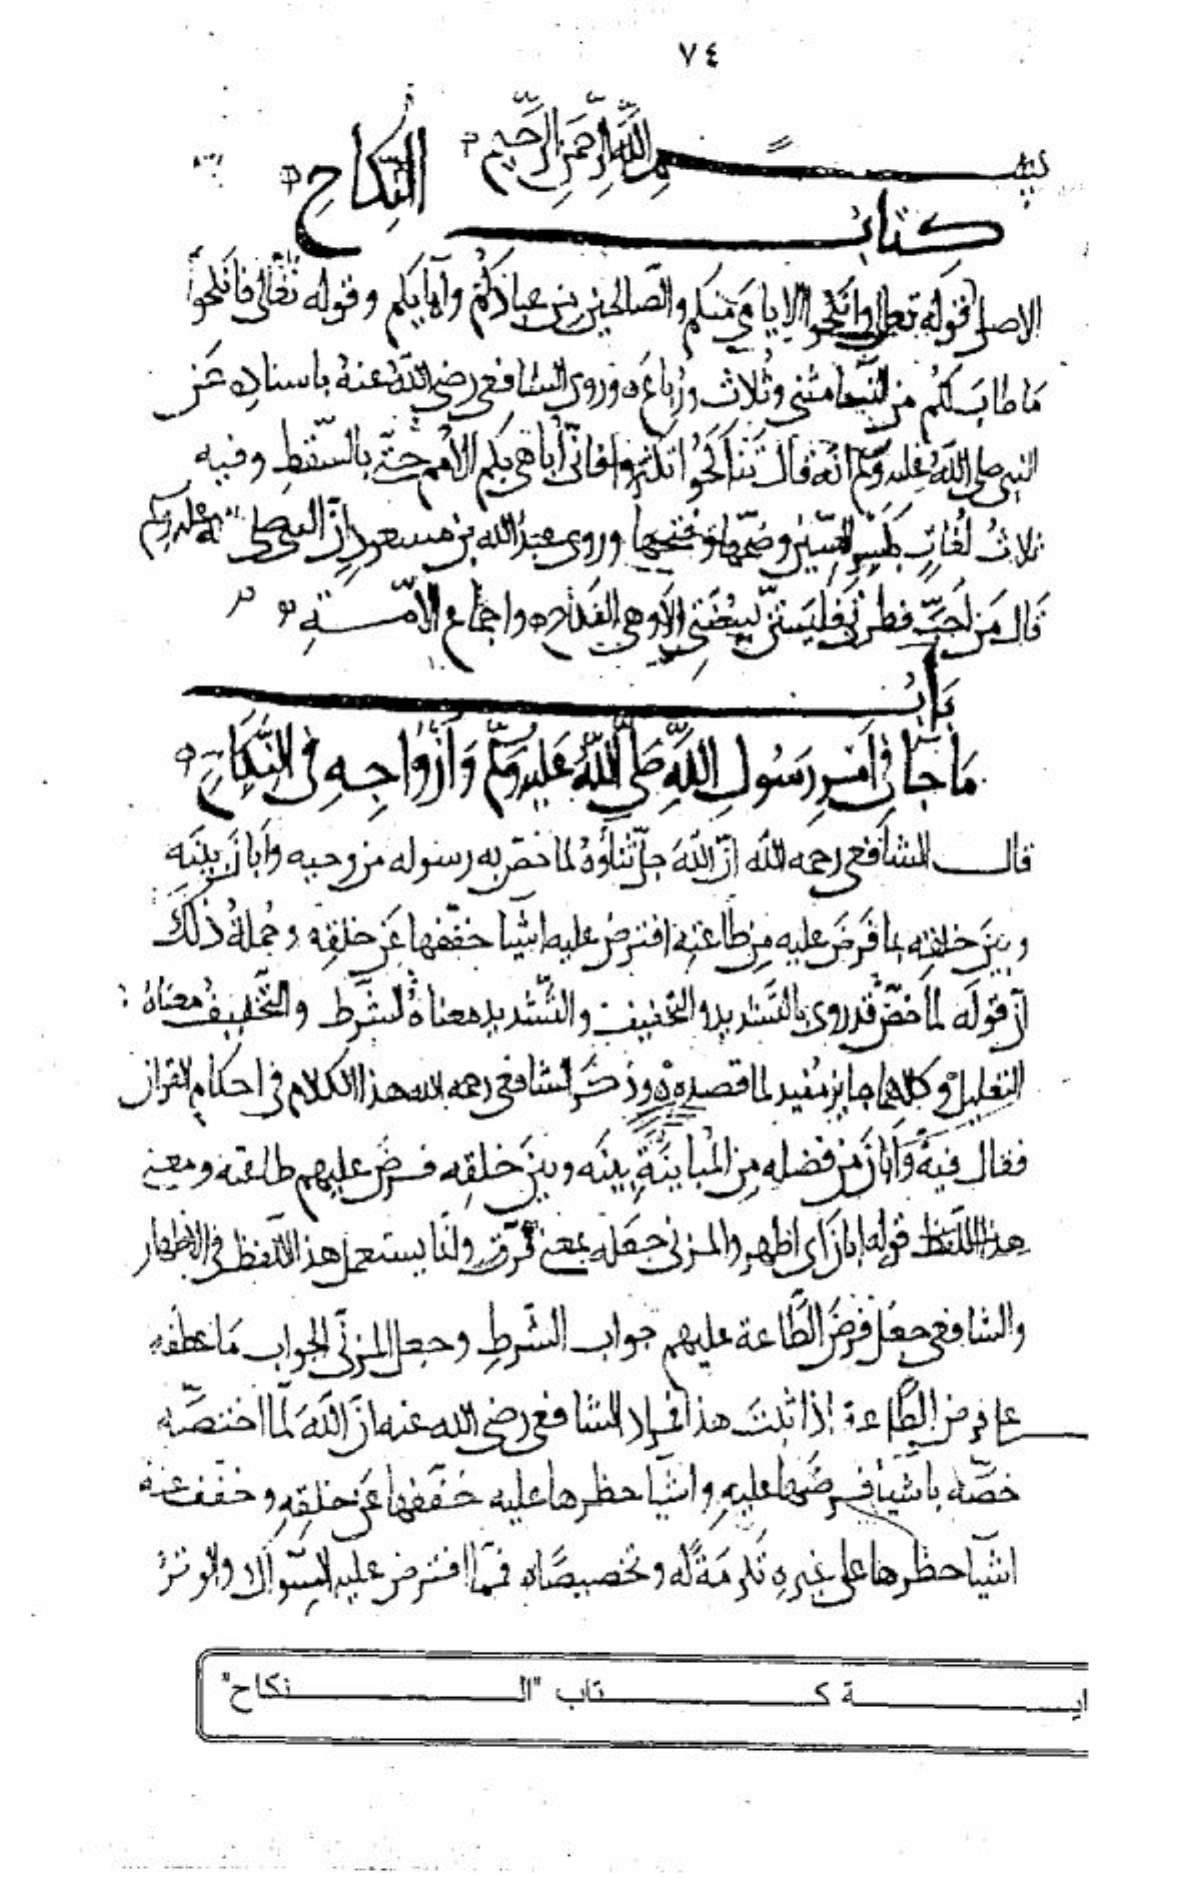 ٧٤
بسم الله الرحمن الرحيم
كتاب النكاح
الاصل قوله تعالى وأنكحوا الايامى منكم والصالحين من عبادكم وامايكم وقوله تعالى فانكحوا
ما طاب لكم من النسا مثنى وثلاث ورباع وروى الشافعى رضى الله عنه باسناده عن
النبى صلى الله عليه وسلم انه قال تناكحوا تكثروا فانى أباهى بكم الأمم حتى بالسقط وفيه
ثلاث لغات بكسر السين وضمها وفتحها وروى عبد الله بن مسعود ان النبى صلى الله عليه وسلم
قال من أحب فطرتى فليستن بسنتى الا وهى النكاح واجماع الامة
باب
ما جا فى امر رسول الله صلى الله عليه وسلم وأزواجه فى النكاح
قال الشافعى رحمه الله ان الله جل ثناؤه لما خص به رسوله من وحيه وأبان بينه
وبين خلقه بما فرض عليه من طاعته افترض عليه اشيا خففها عن خلقه وجملة ذلك
ان قوله لما خص قد روى بالتشديد والتخفيف والتشديد معناه الشرط والتخفيف معناه
التعليل وكلاهما جايز مفيد لما قصده وذكر الشافعى رحمه الله هذا الكلام فى احكام القران
فقال فيه وأبان من فضله من المباينة بينه وبين خلقه فرض عليهم طاعته ومعنى
هذا اللفظ قوله ابان أى اظهر والمزنى جعله بمعنى فرق ولنا يستعمل هذا اللفظ فى الاظهار
والشافعى جعل فرض الطاعة عليهم جواب الشرط وجعل المزنى الجواب ما عطفه
على فرض الطاعة اذا ثبت هذا فمراد الشافعى رضى الله عنه ان الله لما اختصه
خصه باشيا فرضها عليه واشيا حظرها عليه خففها عن خلقه وخفف عنه
اشيا حظرها على غيره تكرمة له وتخصيصا فمما افترض عليه السواك والوتر
ايـة كـتاب "الـنكاح"